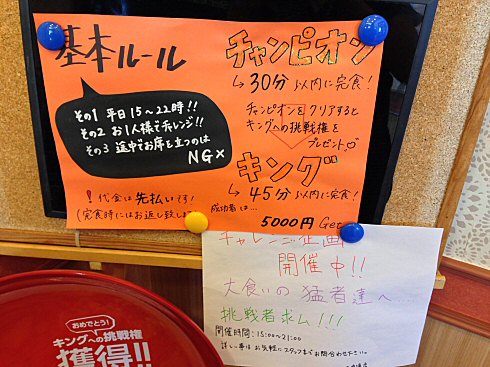 基本ルール
その1 平日15~22時!!
その2 お1人様でチャレンジ!!
その3 途中でお席を立つのは
NG×
!代金は先払いです!
(完食時にはお返し致しま
チャンピオン
↳30分以内に完食!
チャンピオンをクリアすると
キングへの挑戦権を
プレゼント♪
キング
↳45分以内に完食!
成功者は…
5000円Get
チャレンジ企画
開催中!!
大食いの猛者達へ…
挑戦者求ム!!!
開催時間:15:00~21:00
詳しい事はお気軽にスタッフまでお問合わせ下さい。
おめでとう!
キングへの挑戦権
獲得!!